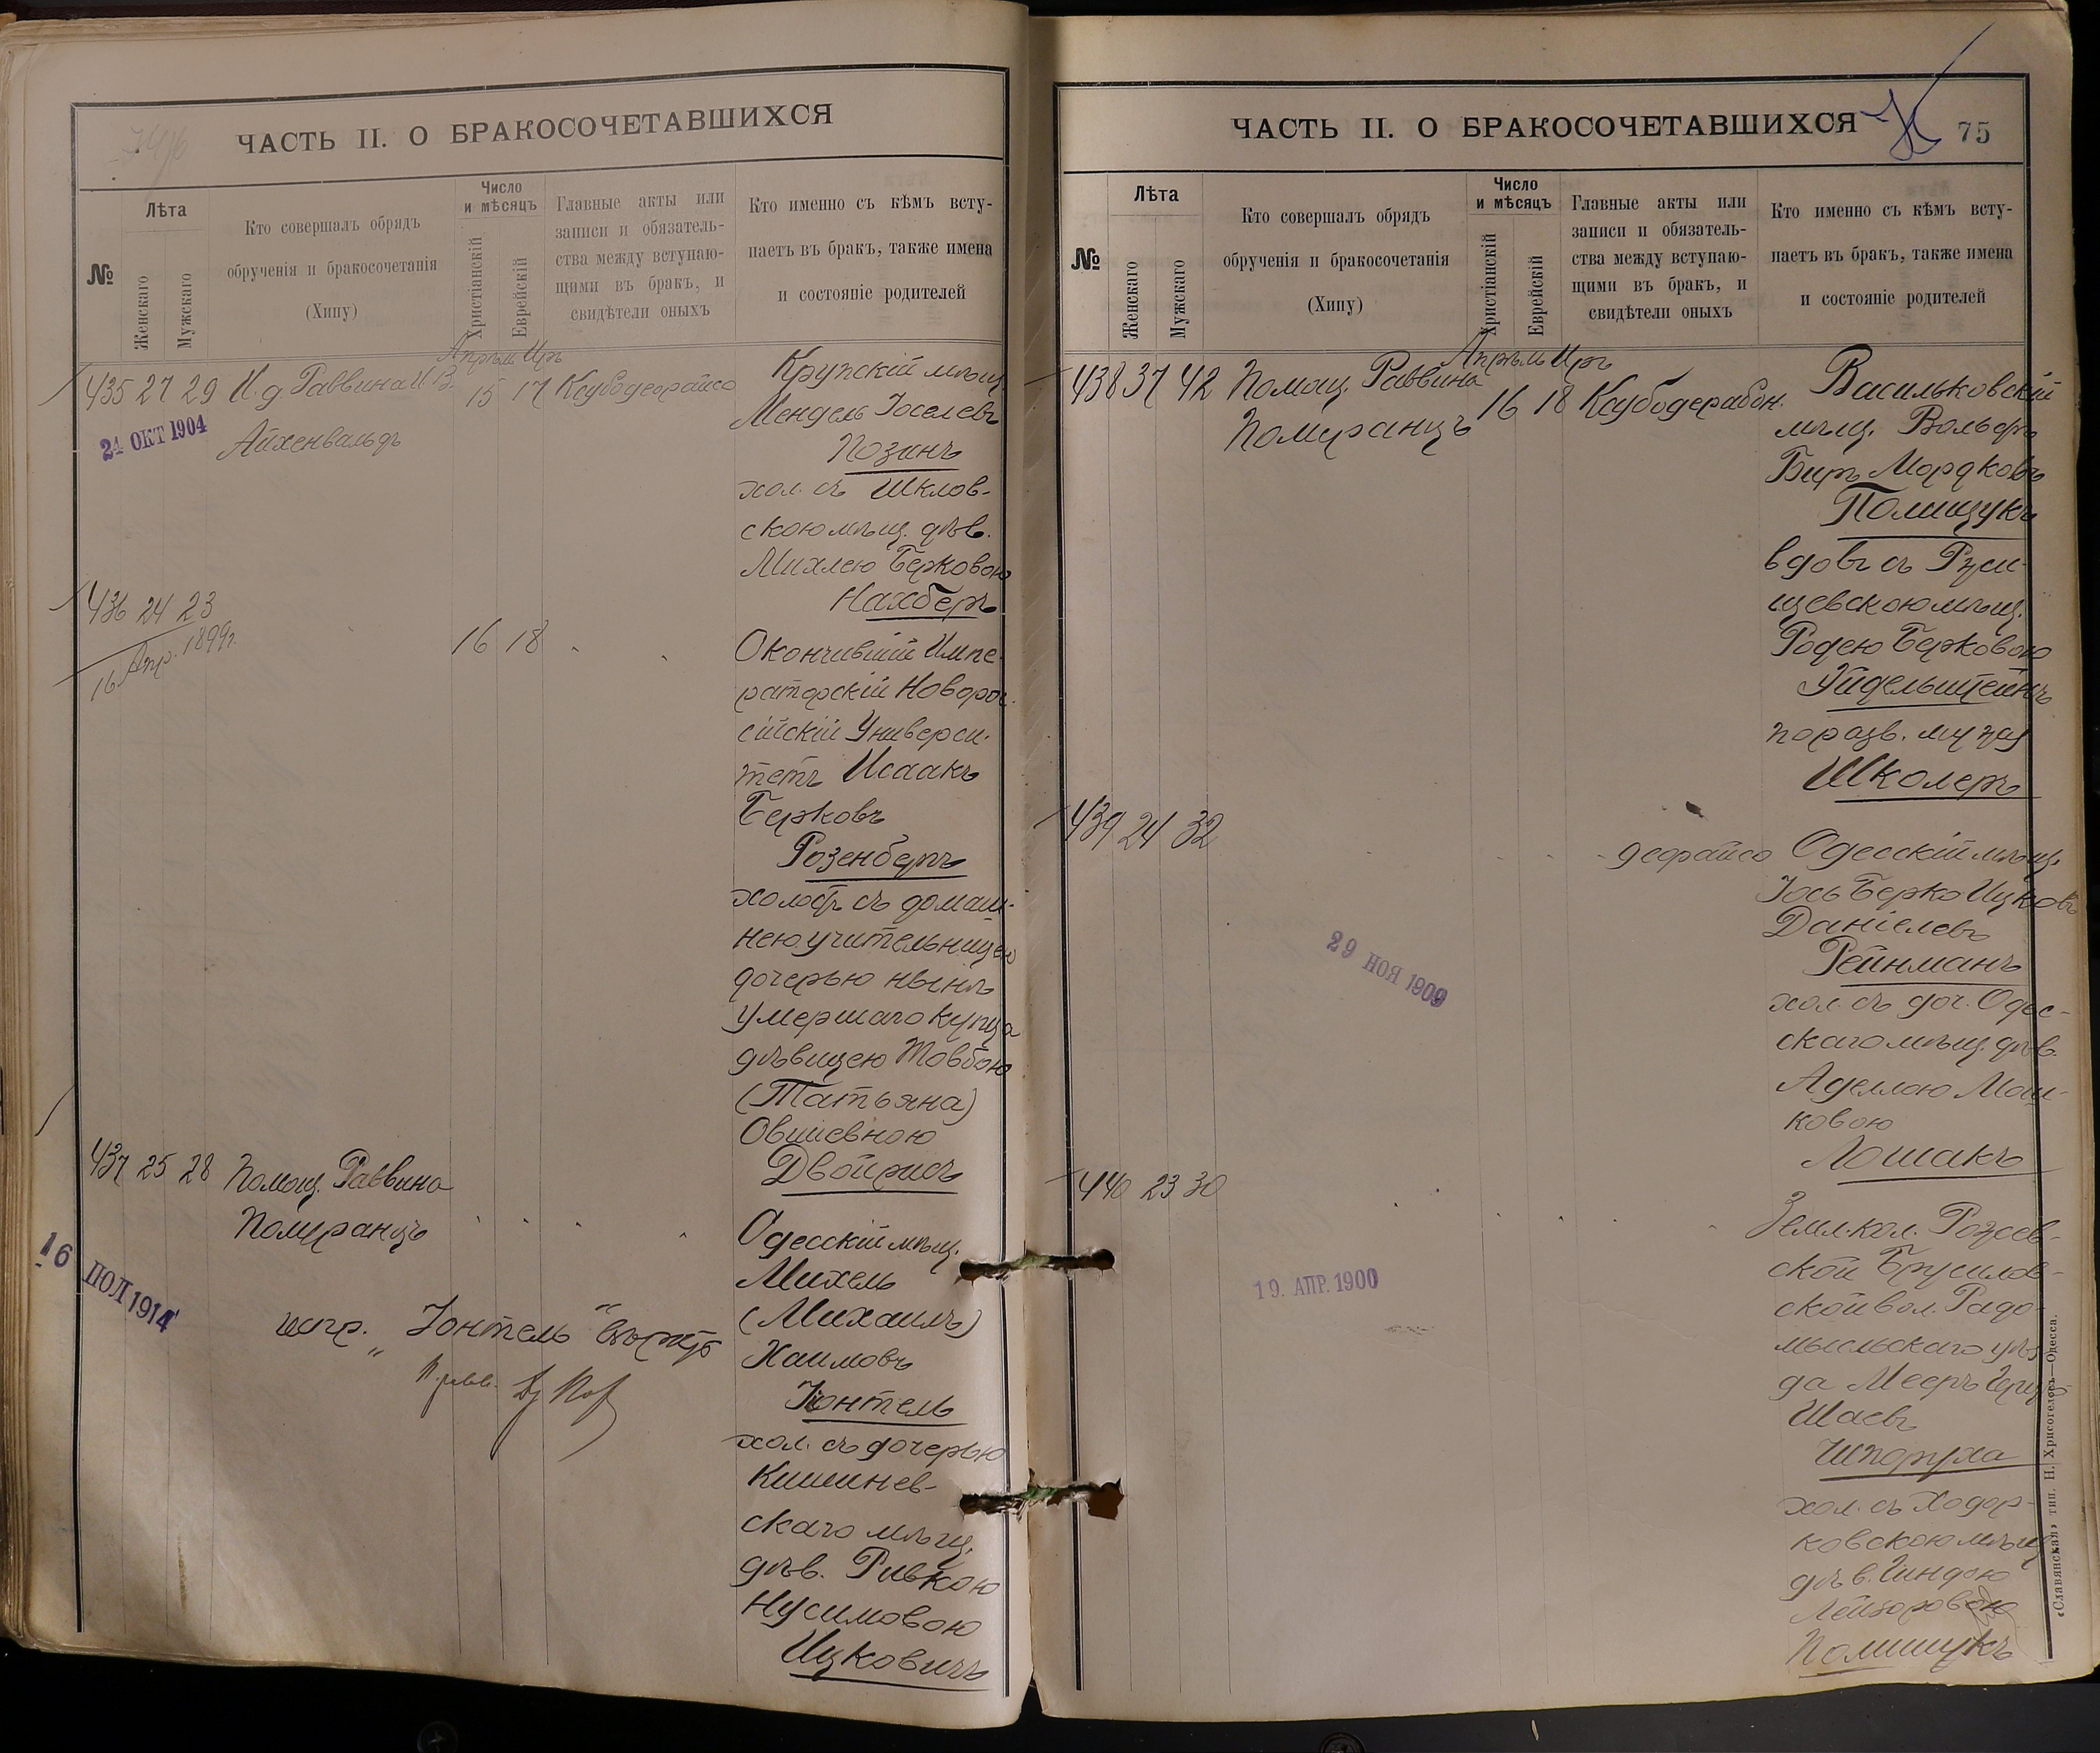 ЧАСТЬ II. О БРАКОСОЧЕТАВШИХСЯ
№
Лѣта
Женскаго
Мужскаго
Кто совершалъ обрядъ
обрученія и бракосочетанія
(Хипу)
Число
и мѣсяцъ
Христіанскій
Еврейскій
Главные акты или
записи и обязатель-
ства между вступаю-
щими въ бракъ, и
свидѣтели оныхъ
Кто именно съ кѣмъ всту-
паетъ въ бракъ, также имена
и состояніе родителей
Апрѣль Иръ
435 27 29 И. д. Раввина И. В. 15 17 Ксубодеграйсо Крупскій мѣщ.
24 ОКТ 1904
Айхенвальдъ
Мендель Іоселевъ
Позинъ
хол. съ Шклов-
скою мѣщ. дѣв.
Михлею Берковою
Нахберъ
436 24 23
16 Апр. 1899г.
16 18
Окончившій Импе-
раторскій Новорос-
сійскій Универси-
тетъ Исаакъ
Берковъ
Розенбергъ
холост. съ домаш-
нею учительницею
дочерью нынѣ
умершаго купца
дѣвицею Товбою
(Татьяна)
Овшіевною
Двойрисъ
437 25 28 Помощ. Раввина
Померанцъ
16 ІЮЛ 1914
Одесскій мѣщ.
Михель
(Михаилъ)
Хаимовъ
Юнтель
испр. „Юнтель“
хол. съ дочерью
Кишинев-
скаго мѣщ.
дѣв. Ривкою
Нусимовою
Ицковичъ
ЧАСТЬ II. О БРАКОСОЧЕТАВШИХСЯ
75
№
Лѣта
Женскаго
Мужскаго
Кто совершалъ обрядъ
обрученія и бракосочетанія
(Хипу)
Число
и мѣсяцъ
Христіанскій
Еврейскій
Главные акты или
записи и обязатель-
ства между вступаю-
щими въ бракъ, и
свидѣтели оныхъ
Кто именно съ кѣмъ всту-
паетъ въ бракъ, также имена
и состояніе родителей
Апрѣль Иръ
438 37 42 Помощ. Раввина
Померанцъ
16 18 Ксубодерабон.
Васильковскій
мѣщ. Вольфъ
Беръ Мордковъ
Полищукъ
вдов. съ Ржи-
щевскою мѣщ.
Родею Берковою
Уйдельштейнъ
по разв. мужу
Школеръ
439 24 32
деграйсо
Одесскій мѣщ.
Іось Берко Ицковъ
Даніелевъ
Рейнманъ
29 НОЯ 1909
хол. съ доч. Одес-
скаго мѣщ. дѣв.
Аделлою Мош-
ковою
Лошакъ
440 23 30
19. АПР. 1900
Земл. кол. Рожев-
ской Брусилов-
ской вол. Радо-
мысльскаго уѣз-
да Мееръ Герш.
Шаевъ
Шпоруха
хол. съ Ходор-
ковскою мѣщ.
дѣв. Гиндою
Лейзоровою
Полищукъ
«Славянская» тип. Н. Хрисогелосъ—Одесса.